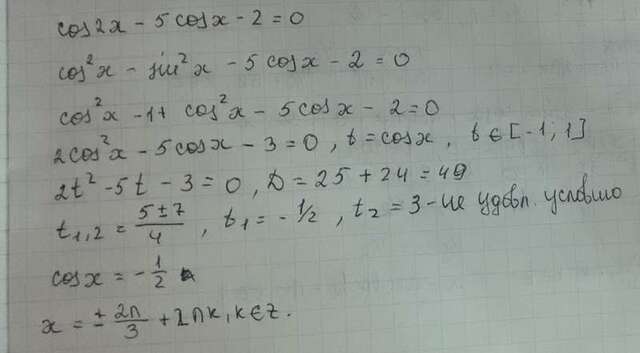 cos2x - 5cosx - 2 = 0
cos²x - sin²x - 5cosx - 2 = 0
cos²x - 1 + cos²x - 5cosx - 2 = 0
2cos²x - 5cosx - 3 = 0, t = cosx, t ∈ [-1, 1]
2t² - 5t - 3 = 0, D = 25 + 24 = 49
t₁,₂ = (5 ± 7)/4, t₁ = -1/2, t₂ = 3 - не удовл. условию
cosx = -1/2
x = ± 2π/3 + 2πk, k ∈ z.